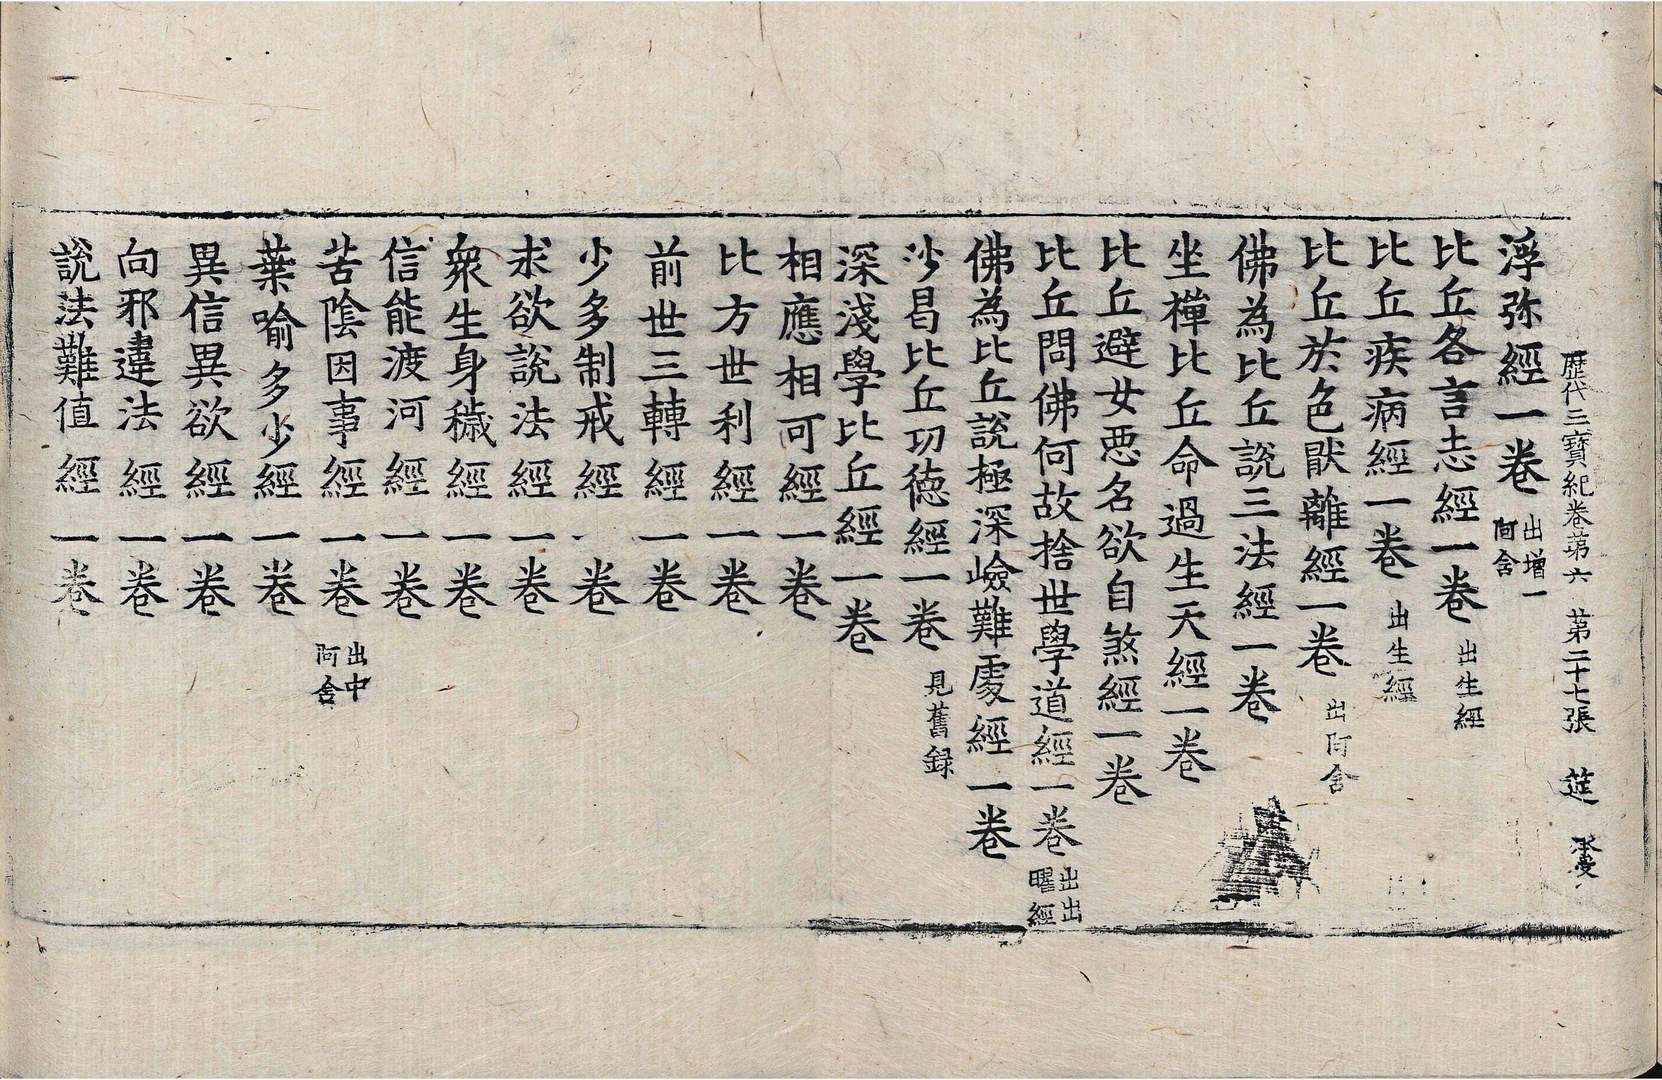 歷代三寶紀卷第六 第二十七張 筵 承愛
浮弥經一卷 出增一阿含
比丘各言志經一卷 出生經
比丘疾病經一卷 出生經
比丘於色猒離經一卷 出阿含
佛為比丘說三法經一卷
坐禪比丘命過生天經一卷
比丘避女惡名欲自煞經一卷
比丘問佛何故捨世學道經一卷 出出曜經
佛為比丘說極深嶮難處經一卷
沙曷比丘功德經一卷 見舊録
深淺學比丘經一卷
相應相可經一卷
比方世利經一卷
前世三轉經一卷
少多制戒經一卷
求欲說法經一卷
衆生身穢經一卷
信能渡河經一卷
苦陰因事經一卷 出中阿含
葉喻多少經一卷
異信異欲經一卷
向邪違法經一卷
說法難值經一卷